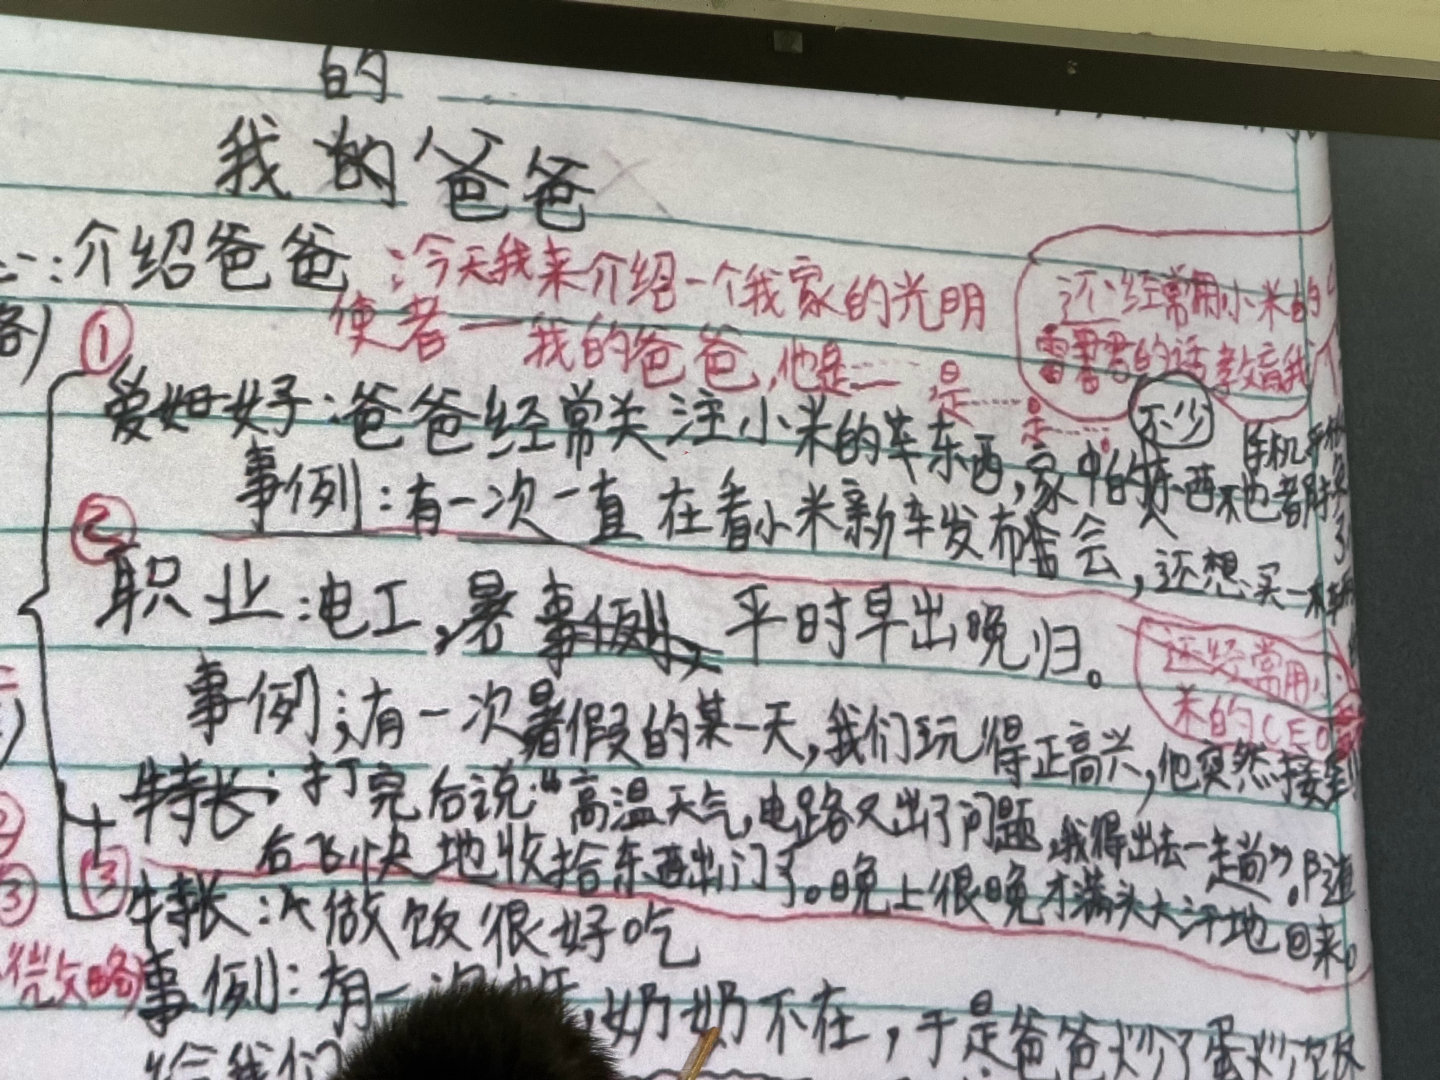 的
我的爸爸
介绍爸爸:今天我来介绍一个我家的光明
使者一我的爸爸,他是……是……是……。
还经常用小米的
雷军的话教育我
①
爱好:爸爸经常关注小米的车东西,家中的不少东西也都
手机
事例:有一次一直在看小米新车发布会,还想买一
②
职业:电工,平时早出晚归。
还经常用小
米的CEO
事例:有一次暑假的某一天,我们玩得正高兴,他突然接
打完后说“高温天气,电路又出了问题,我得出去一趟”。随
后飞快地收拾东西出门了。晚上很晚才满头大汗地回来。
③
特长:做饭很好吃
略)事例:有一次,奶奶不在,于是爸爸炒了蛋炒饭
给我们